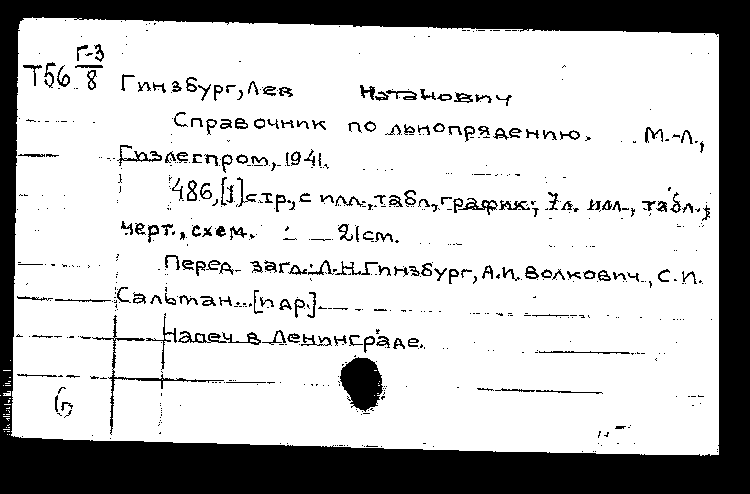 Т56 Г-3/8
Гинзбург, Лев Натанович
Справочник по льнопрядению. М.-Л.,
Гизлегпром, 1941.
486, [1] стр., с илл., табл., график; 7 л. илл., табл.,
черт., схем. 21 cm.
Перед загл.: Л.Н. Гинзбург, А.И. Волкович, С.И.
Сальман... [и др].
Напеч. в Ленинграде.